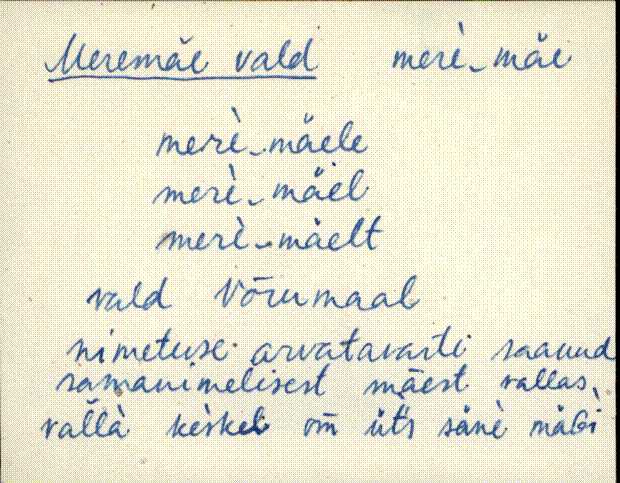 Meremäe vald merè‿mäe
merè‿mäele
merè‿mäel
merè‿mäelt
vald Võrumaal
nimetuse arvatavasti saanud
samanimelisest mäest vallas,
vallà keskel om üt's säne